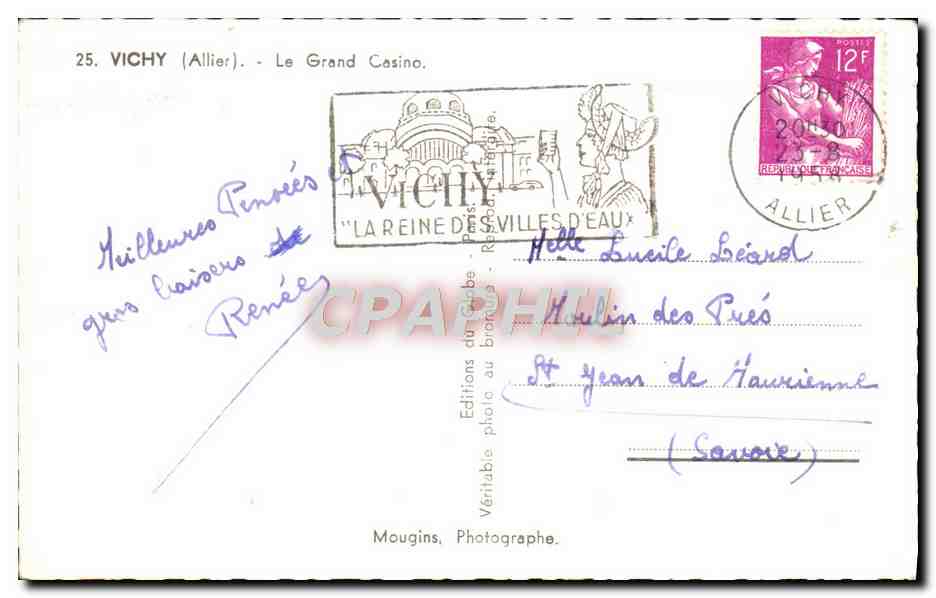 25. VICHY (Allier). - Le Grand Casino.
POSTES
12F
REPUBLIQUE FRANÇAISE
VICHY
20H30
23-8
ALLIER
VICHY
"LA REINE DES VILLES D'EAUX
Meilleures Pensées et
gros baisers de
Renée
Melle Lucile Léard
Moulin des Prés
St Jean de Maurienne
(Savoie)
Editions du Globe - Paris.
Véritable photo au bromure - Reprod. interdite.
CPAPHIL
Mougins, Photographe.